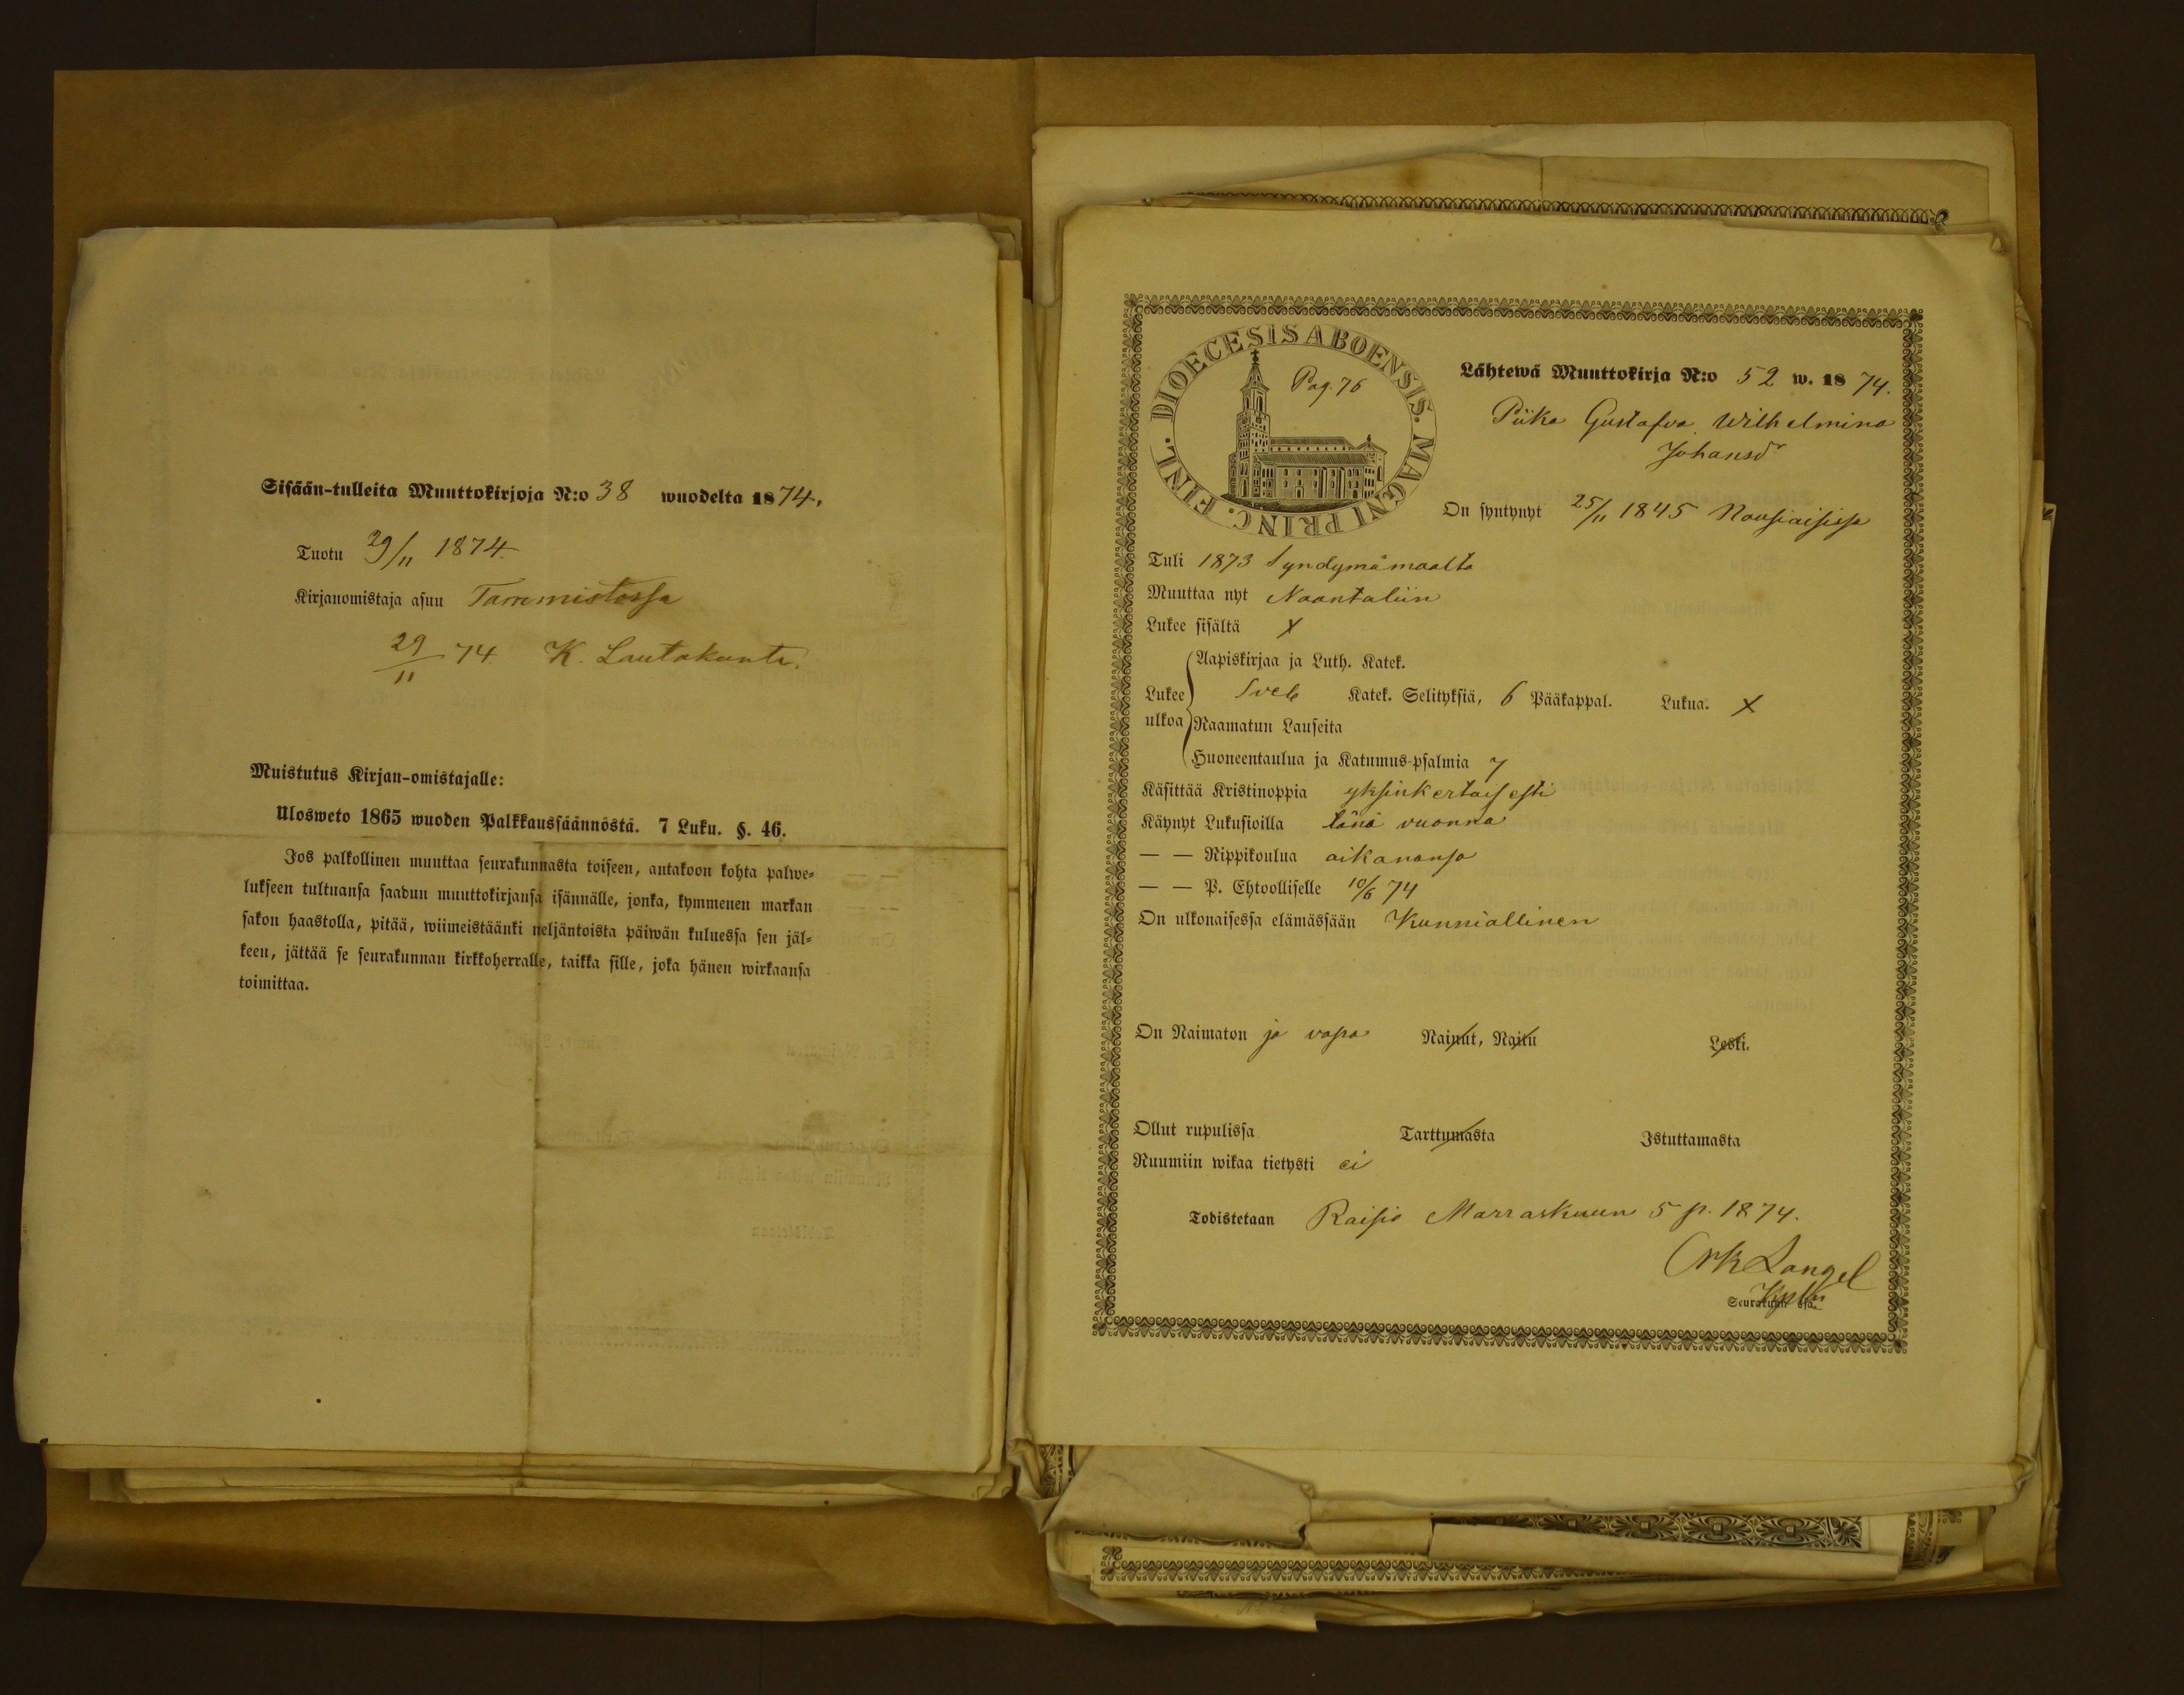 Sisään-tulleita Muuttokirjoja N:o 38 wuodelta 1874.
Tuotu 29/11 1874.
Kirjanomistaja asuu Tammistossa
29/11 74. K. Lautakunta.
Muistutus Kirjan-omistajalle:
Ulosweto 1865 wuoden Palkkaussäännöstä. 7 Luku. §. 46.
Jos palkollinen muuttaa seurakunnasta toiseen, antakoon kohta palwe=
lukseen tultuansa saadun muuttokirjansa isännälle, jonka, kymmenen markan
sakon haastolla, pitää, wiimeistäänki neljäntoista päiwän kuluessa sen jäl=
keen, jättää se seurakunnan kirkkoherralle, taikka sille, joka hänen wirkaansa
toimittaa.
DIOECESIS ABOENSIS. MAGNI PRINC. FINL.
Pag. 76
Lähtewä Muuttokirja N:o 52 w. 1874.
Piika Gustafva Wilhelmina
Johansdr
On syntynyt 25/11 1845 Nousiaisissa
Tuli 1873 Syndymämaalta
Muuttaa nyt Naantaliin
Lukee sisältä X
Aapiskirjaa ja Luth. Katek.
Lukee Sveb Katek. Selityksiä, 6 Pääkappal. Lukua. X
ulkoa Raamatun Lauseita
Huoneentaulua ja Katumus-psalmia 7
Käsittää Kristinoppia yksinkertaisesti
Käynyt Lukusioilla tänä vuonna
— — Rippikoulua aikanansa
— — P. Ehtoolliselle 10/6 74
On ulkonaisessa elämässään Kunniallinen
On Naimaton ja vapaa Nainut, Naitu Leski.
Ollut rupulissa Tarttumasta Istuttamasta
Ruumiin wikaa tietysti ei
Todistetaan Raisio Marraskuun 5 p. 1874.
Langel
Seurakunn